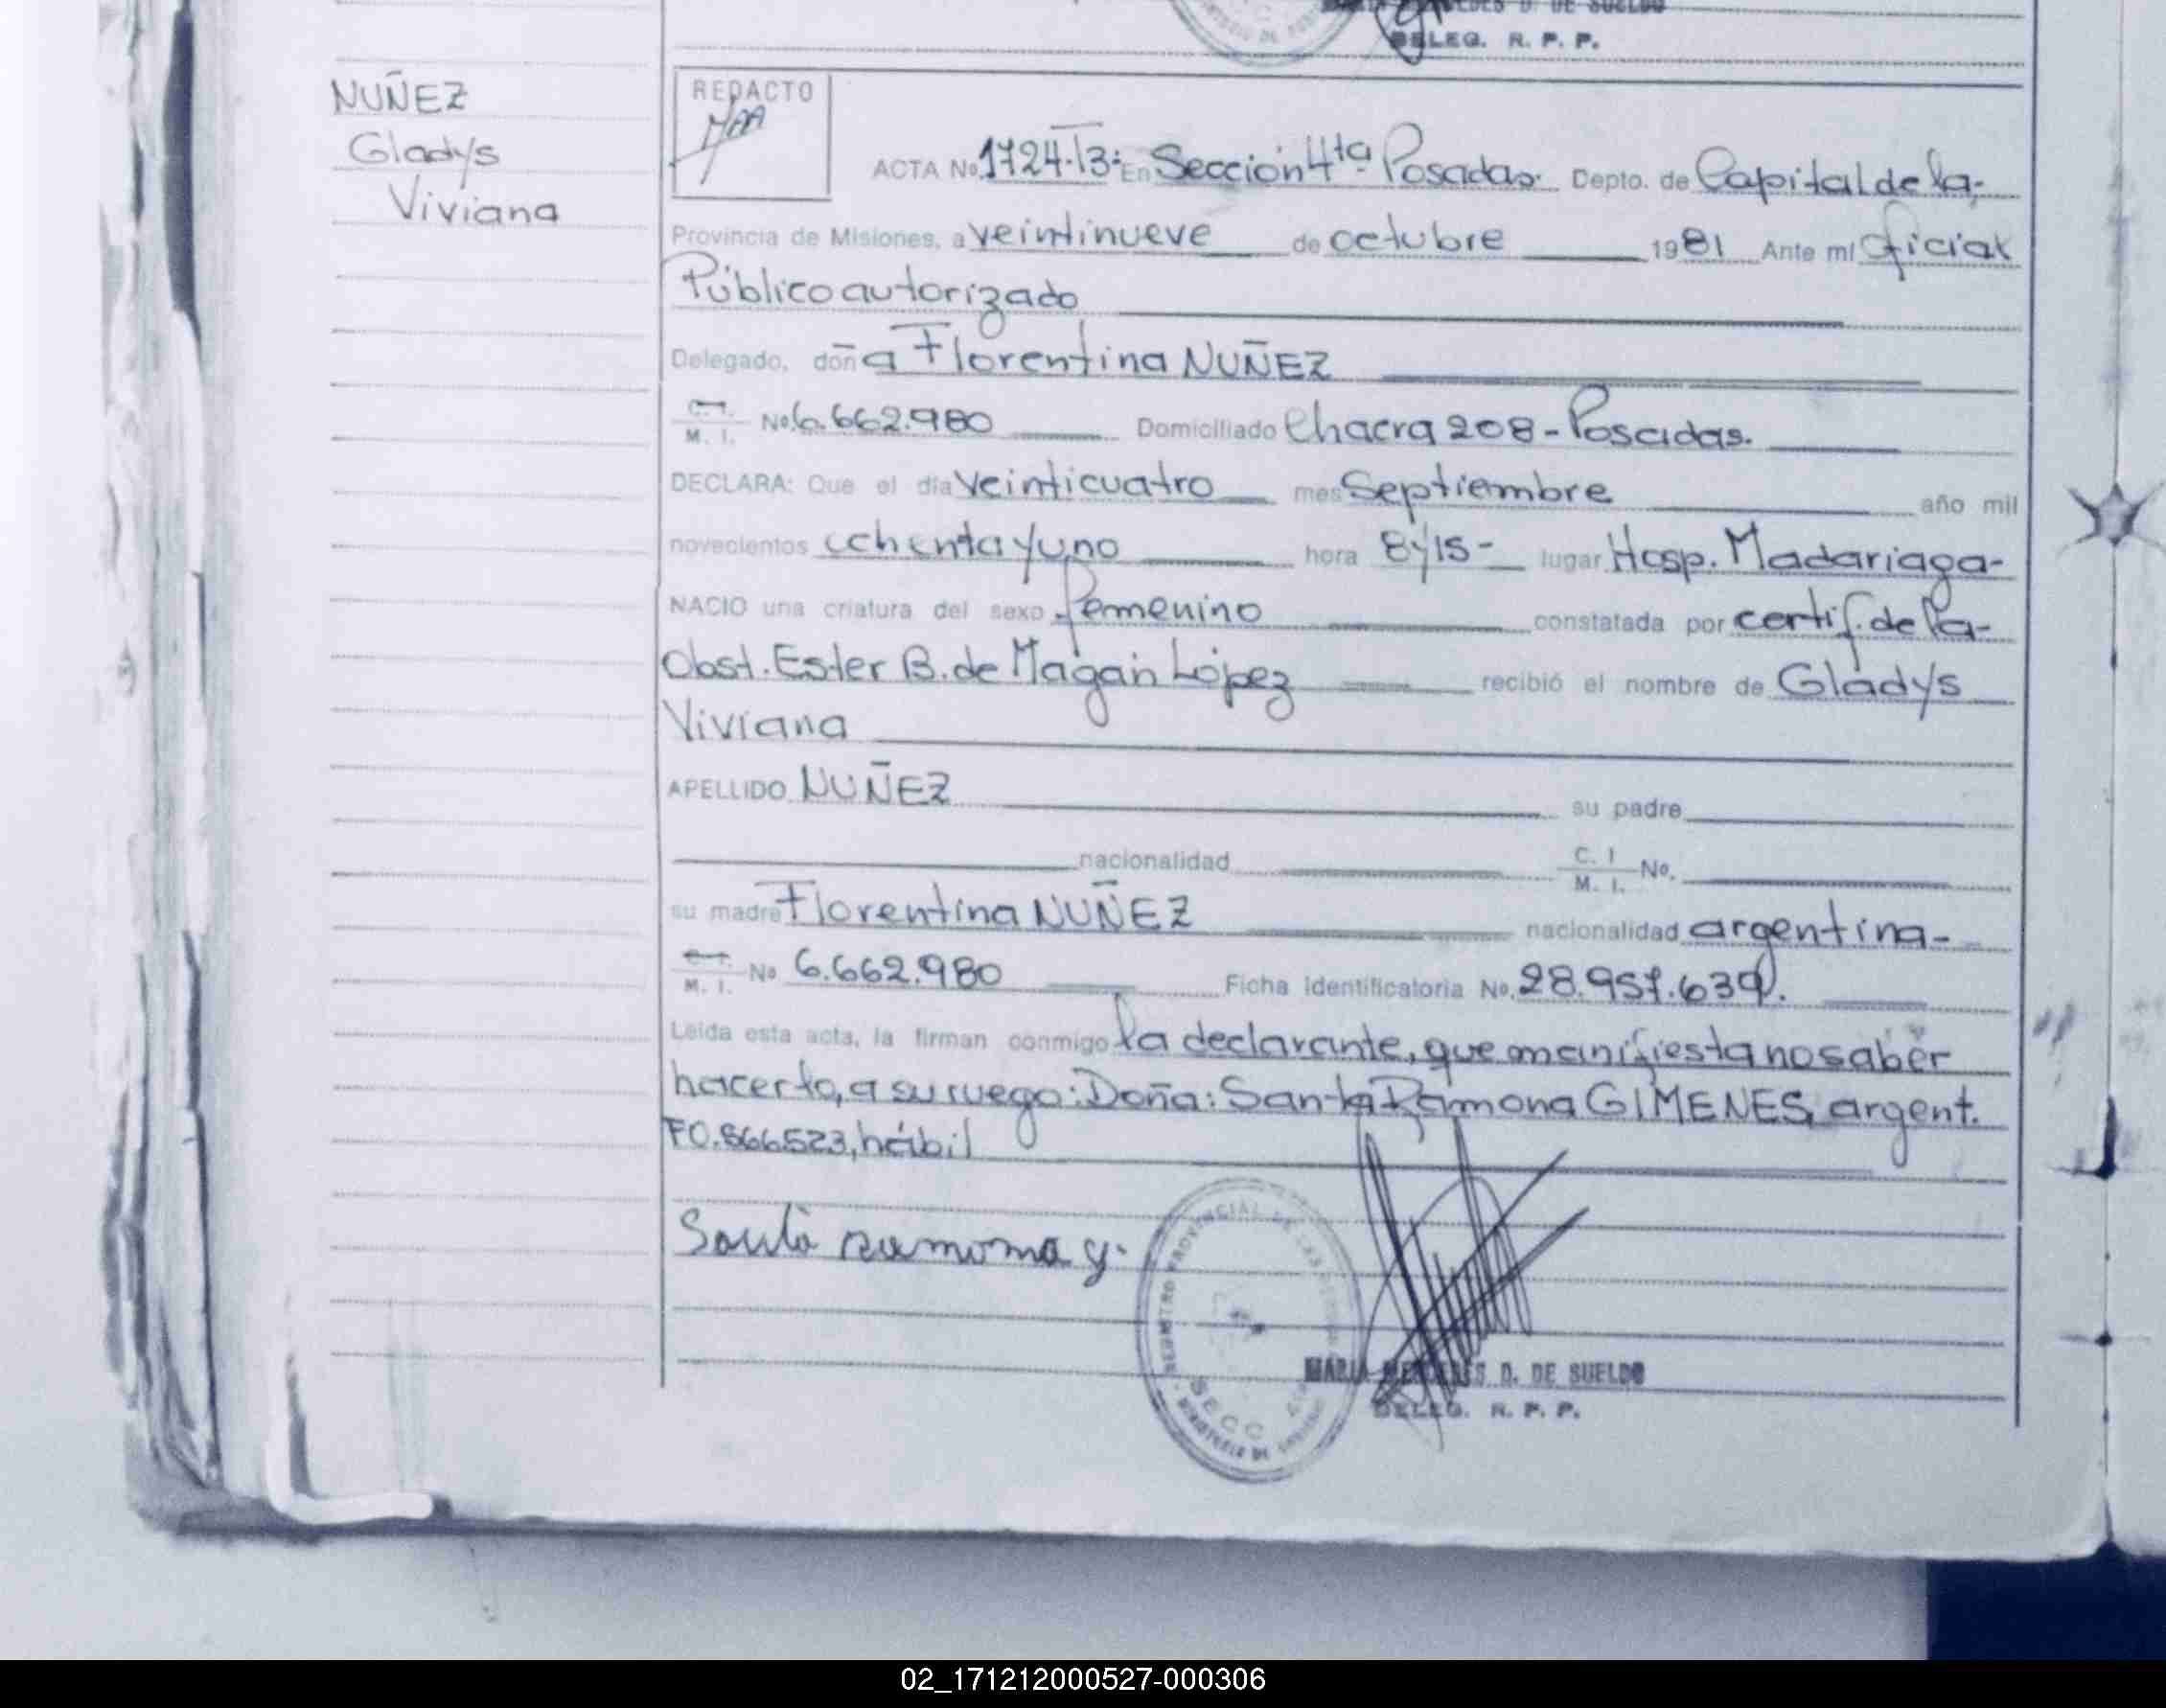 DELEG. R. P. P.
NUÑEZ
Gladys
Viviana
REDACTO
ACTA No. 1724-T3: En Sección 4ta Posadas. Depto. de Capital de la,
Provincia de Misiones, a veintinueve de octubre 1981 Ante mí Oficial
Público autorizado
Delegado, doña Florentina NUÑEZ
C. I. / M. I. No. 6.662.980 Domiciliado Chacra 208 - Posadas.
DECLARA: Que el día veinticuatro mes Septiembre año mil
novecientos ochenta y uno hora 8 y 15 - lugar Hosp. Madariaga-
NACIO una criatura del sexo femenino constatada por certif. de la-
Obst. Ester B. de Magán López recibió el nombre de Gladys
Viviana
APELLIDO NUÑEZ su padre
nacionalidad C. I / M. I. No.
su madre Florentina NUÑEZ nacionalidad argentina-
C. I. / M. I. No 6.662.980 Ficha Identificatoria No. 28.957.639.
Leída esta acta, la firman conmigo la declarante, que manifiesta no saber
hacerlo, a su ruego: Doña: Santa Ramona GIMENES, argent.
F0.866523, hábil
Santa ramona g.
REGISTRO PROVINCIAL DE LAS
SECC
MINISTERIO DE
MARIA MERCEDES D. DE SUELDO
DELEG. R. P. P.
02_171212000527-000306